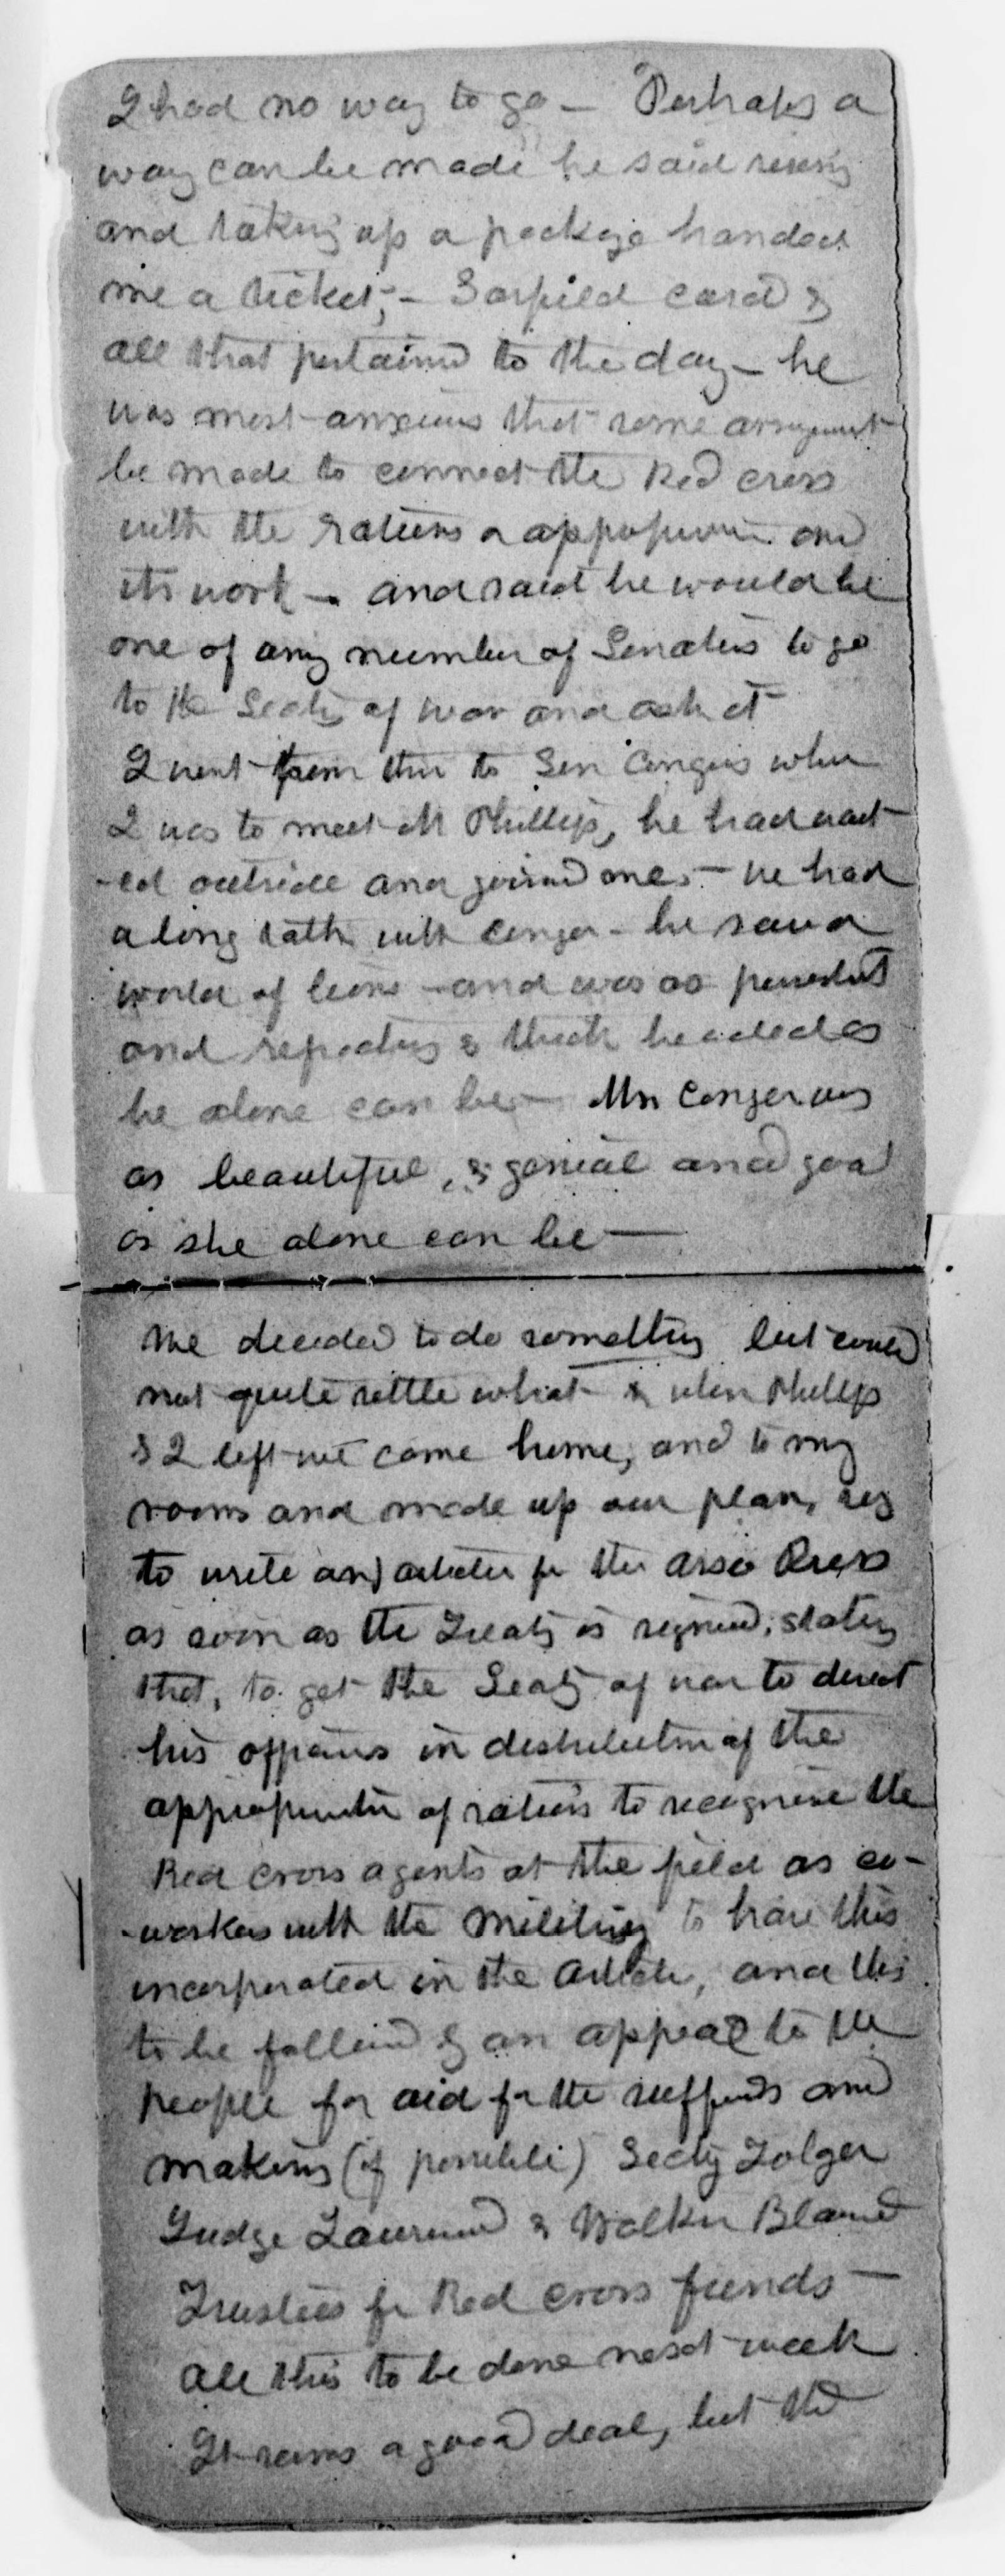 I had no way to go — Perhaps a
way can be made he said rising
and taking up a package handed
me a ticket, — Garfield card &
all that pertained to the day — he
was most anxious that some arrangement
be made to connect the Red cross
with the rations appropriation and
its work — and said he would be
one of any number of Senators to go
to the Secty of War and ask it
I went from there to Sen Congers where
I was to meet Mr Phillips, he had wait
-ed outside and joined me. — We had
a long talk with Conger — he saw a
world of lions — and was as persistent
and repeating & thick headed as
he alone can be — Mrs Conger was
as beautiful, & genial and good
as she alone can be —
We decided to do something but could
not quite settle what & when Phillips
& I left we came home, and to my
rooms and made up our plan, viz
to write an article for the asso Press
as soon as the Treaty is signed, stating
that, to get the Secty of war to direct
his officers in distribution of the
appropriation of rations to recognise the
Red cross agents at the field as co-
-workers with the Military to have this
incorporated in the Article, and this
to be followed by an appeal to the
people for aid for the sufferers and
making (if possible) Secty Folger
Judge Lawrence & Walker Blaine
Trustees for Red cross funds —
All this to be done next week
It rains a good deal, but the